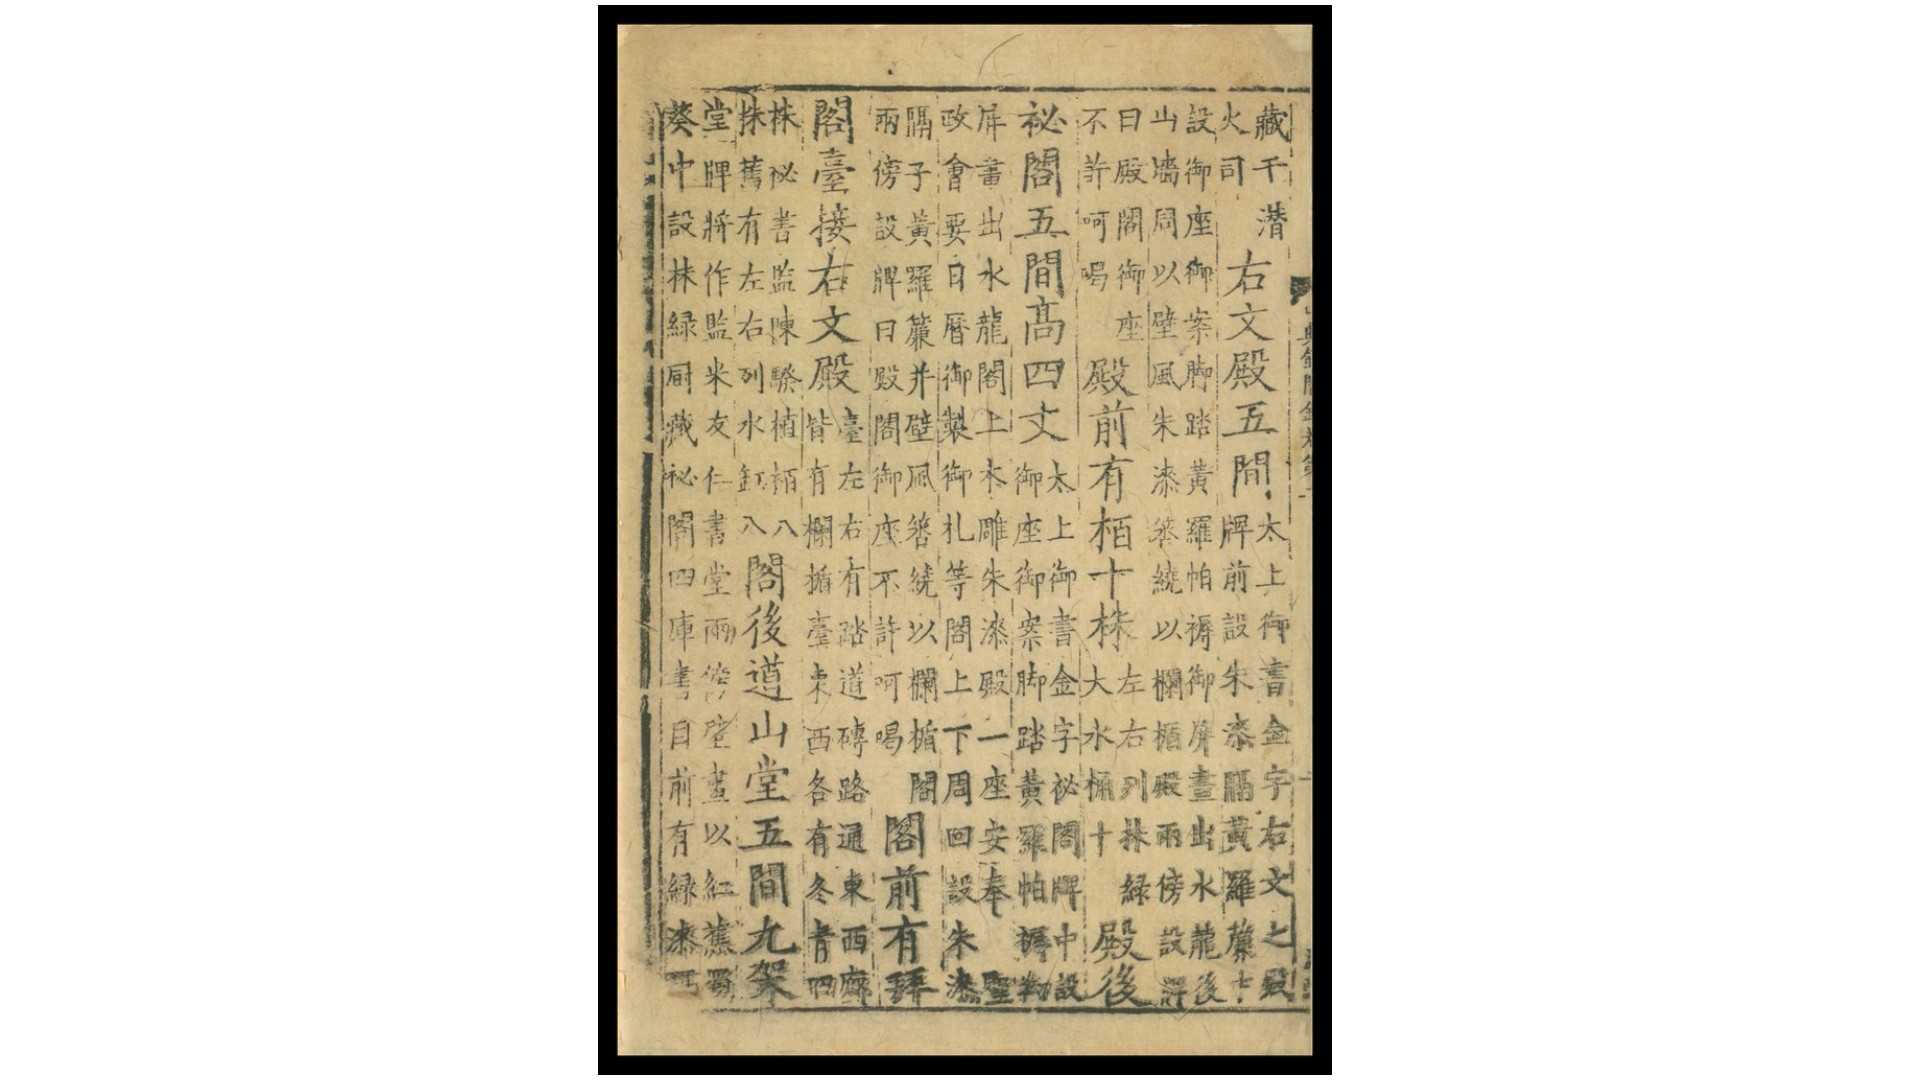 藏千潜
火司
右文殿五間
太上御書金字右文之殿
牌前設朱漆隔黃羅簾十
設御座御案脚踏黃羅帕褥御屏畫出水龍後
山墻周以壁風朱漆箞繞以欄楯殿兩傍設牌
曰殿閣御座
不許呵喝
殿前有栢十株
左右列抹緑
大水桶十
殿後
祕閣五間高四丈
太上御書金字祕閣牌中設
御座御案脚踏黃羅帕褥
屏畫出水龍閣上木雕朱漆殿一座安奉聖
政會要日曆御製御札等閣上下周回設朱漆
隔子黃羅簾并壁風箞繞以欄楯閣
兩傍設牌曰殿閣御座不許呵喝
閣前有拜
閣臺接右文殿
臺左右有踏道磚路通東西廊
皆有欄楯臺東西各有冬青四
株祕書監陳騤植栢八
株舊有左右列水缸八
閣後道山堂五間九架
堂牌將作監米友仁書堂兩傍壁畫以紅蕉蜀
葵中設抹緑厨藏祕閣四庫書目前有緑漆